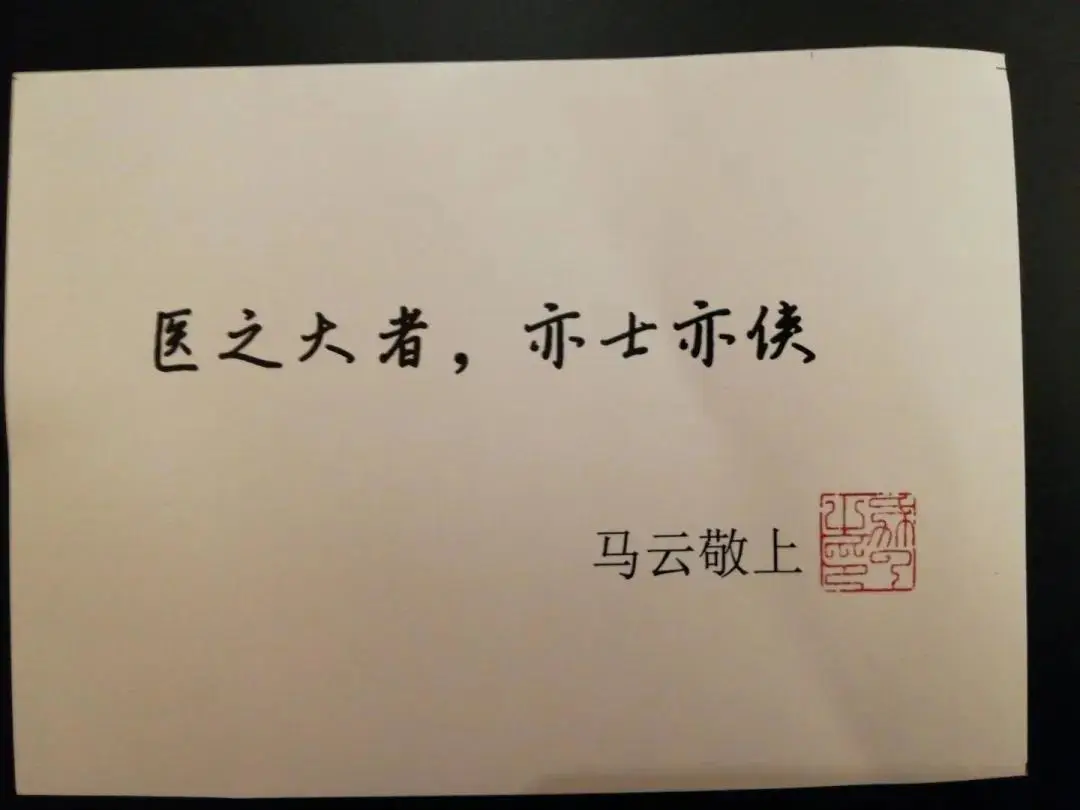 医之大者，亦士亦侠
马云敬上